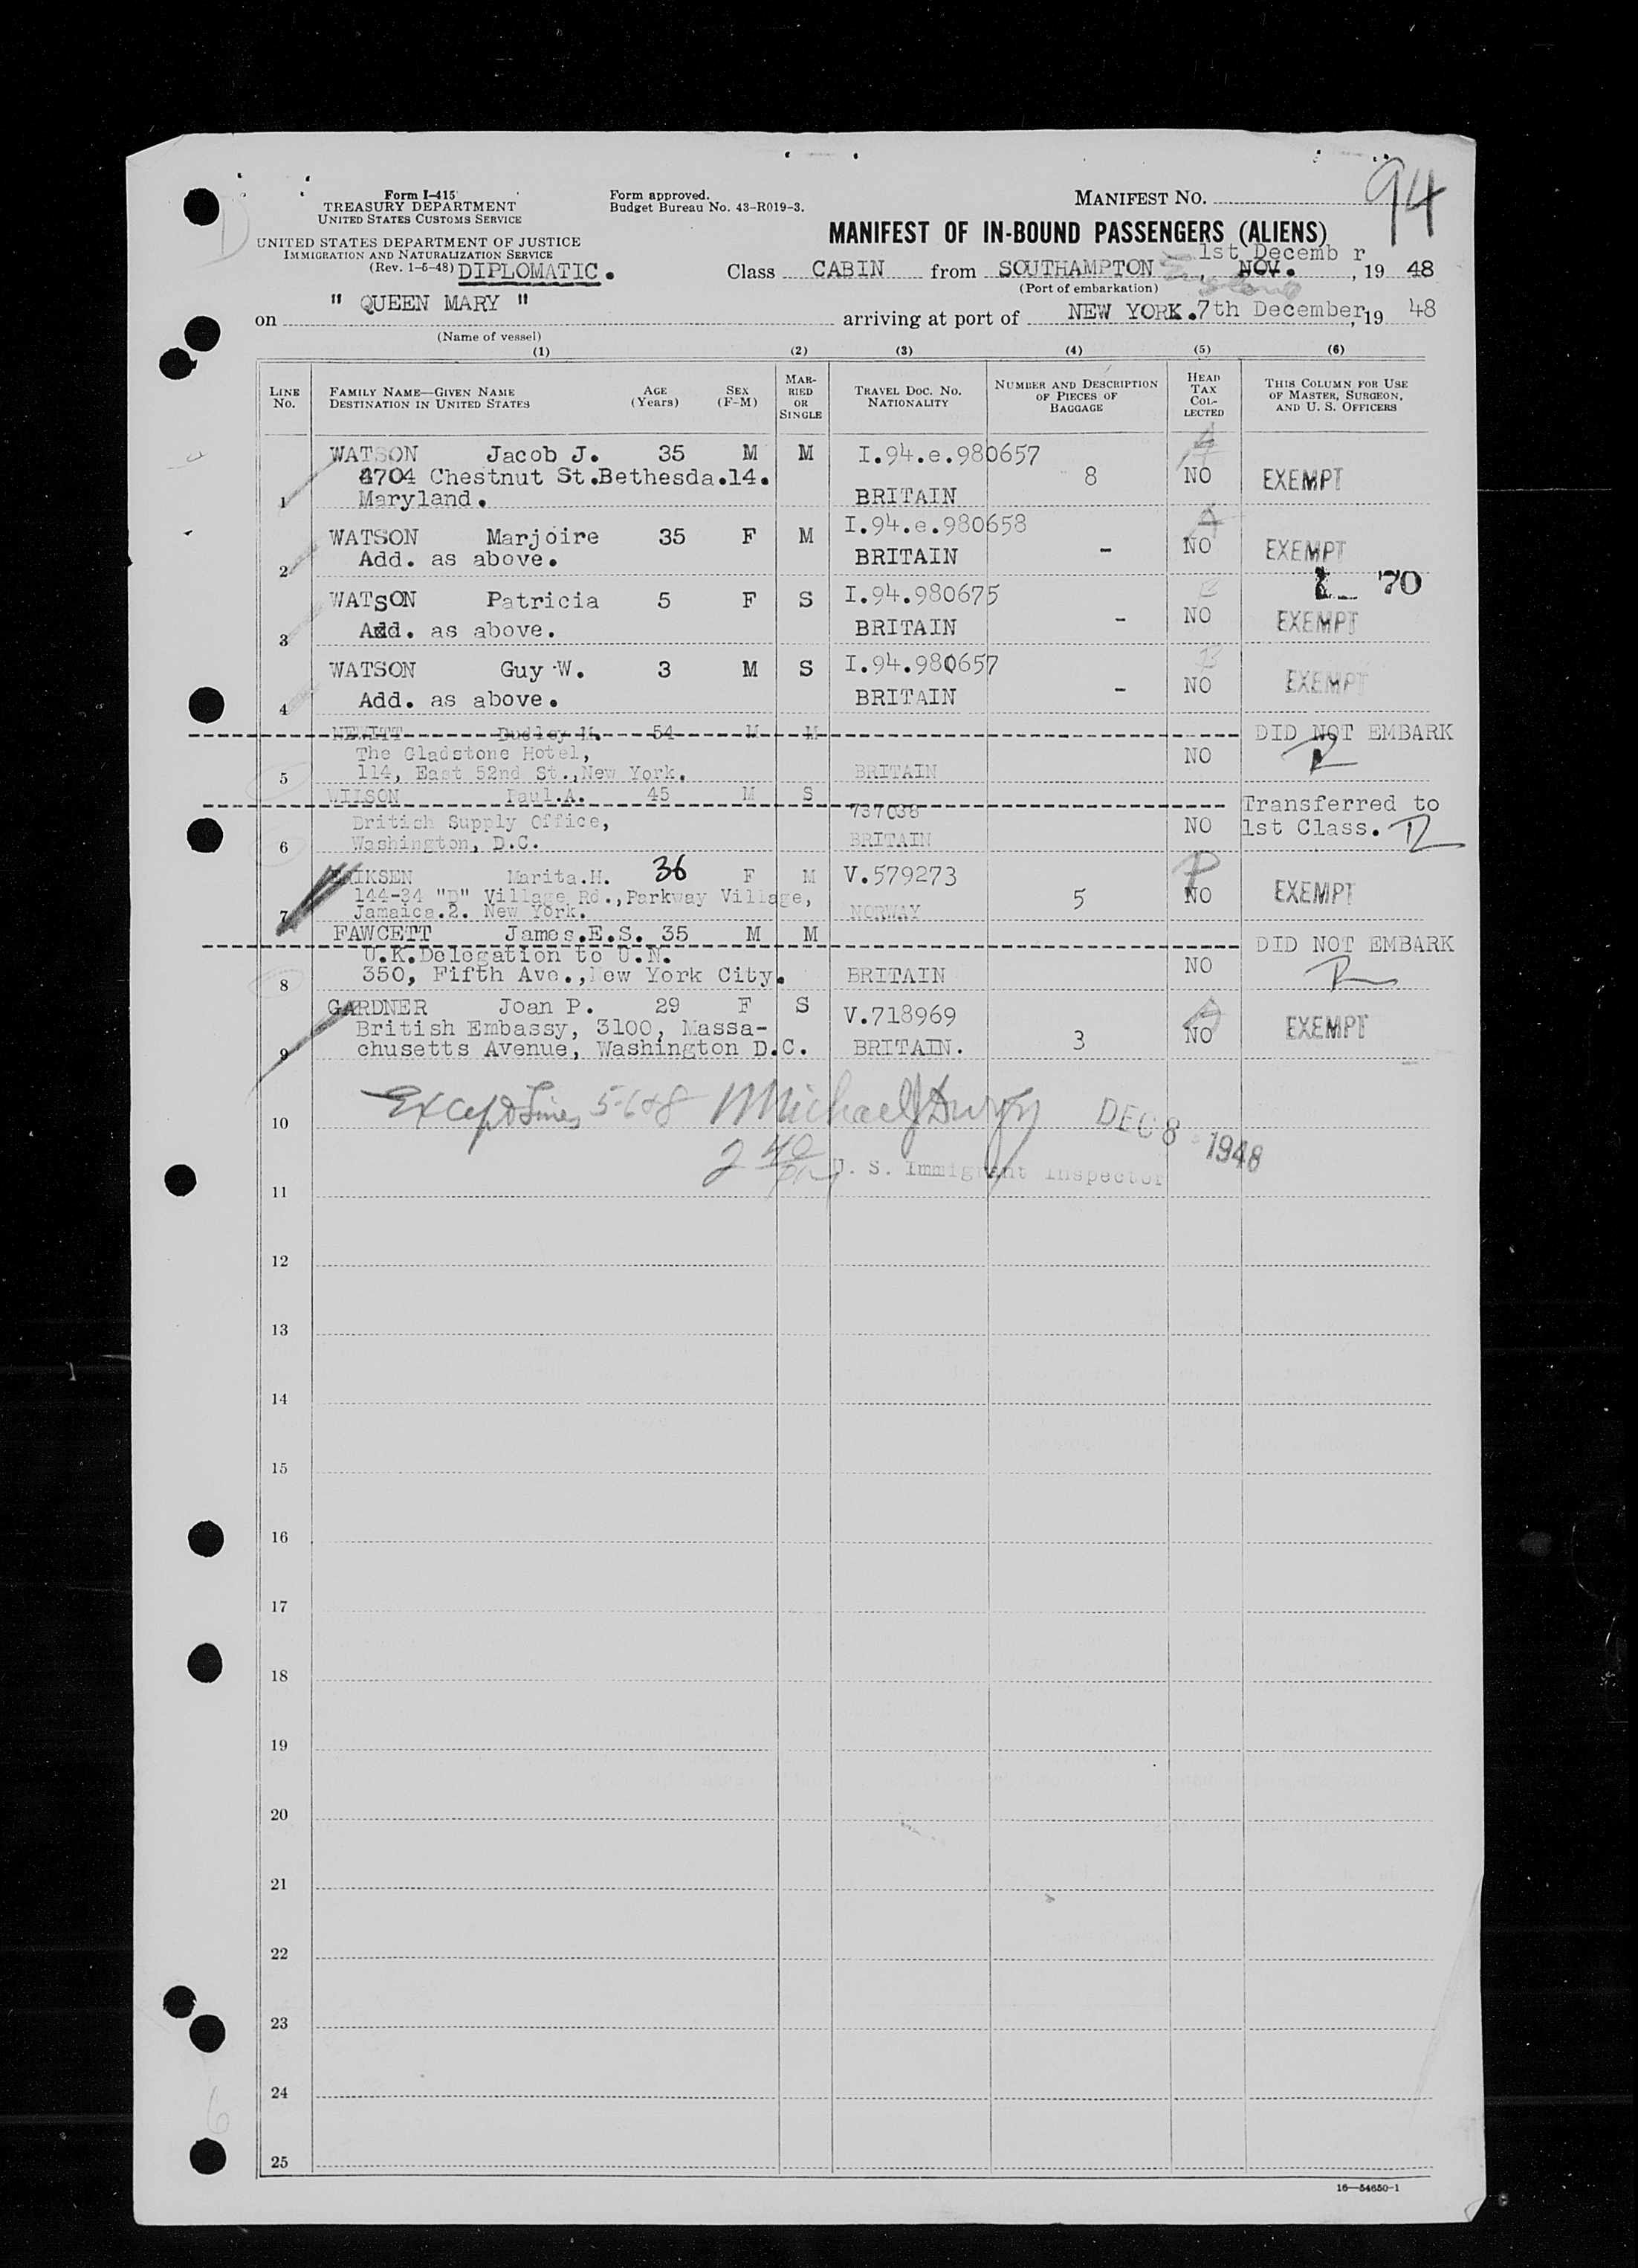 94
Form I-415
TREASURY DEPARTMENT
UNITED STATES CUSTOMS SERVICE
Form approved.
Budget Bureau No. 43-R019-3.
MANIFEST NO.
UNITED STATES DEPARTMENT OF JUSTICE
IMMIGRATION AND NATURALIZATION SERVICE
(Rev. 1-5-48) DIPLOMATIC.
MANIFEST OF IN-BOUND PASSENGERS (ALIENS)
1st Decemb r
Class CABIN from SOUTHAMPTON England, NOV., 19 48
(Port of embarkation)
on " QUEEN MARY " arriving at port of NEW YORK. 7th December, 19 48
(Name of vessel)
(1) (2) (3) (4) (5) (6)
LINE No.
FAMILY NAME—GIVEN NAME
DESTINATION IN UNITED STATES
AGE (Years)
SEX (F-M)
MARRIED OR SINGLE
TRAVEL DOC. NO. NATIONALITY
NUMBER AND DESCRIPTION OF PIECES OF BAGGAGE
HEAD TAX COLLECTED
THIS COLUMN FOR USE OF MASTER, SURGEON, AND U. S. OFFICERS
WATSON Jacob J. 35 M M I.94.e.980657
4704 Chestnut St.Bethesda.14. 8 NO EXEMPT
1 Maryland. BRITAIN
WATSON Marjoire 35 F M I.94.e.980658
2 Add. as above. BRITAIN - NO EXEMPT
70
WATSON Patricia 5 F S I.94.980675
3 Add. as above. BRITAIN - NO EXEMPT
WATSON Guy W. 3 M S I.94.980657
4 Add. as above. BRITAIN - NO EXEMPT
NEWITT Dudley M. 54 M M DID NOT EMBARK
The Gladstone Hotel, NO
5 114, East 52nd St.,New York. BRITAIN
WILSON Paul.A. 45 M S 737038 Transferred to
British Supply Office, NO 1st Class.
6 Washington, D.C. BRITAIN
ERIKSEN Marita.H. 36 F M V.579273
144-34 "D" Village Rd.,Parkway Village, 5 NO EXEMPT
7 Jamaica.2. New York. NORWAY
FAWCETT James.E.S. 35 M M DID NOT EMBARK
U.K.Delegation to U.N. NO
8 350, Fifth Ave.,New York City. BRITAIN
GARDNER Joan P. 29 F S V.718969
British Embassy, 3100, Massa- 3 NO EXEMPT
9 chusetts Avenue, Washington D.C. BRITAIN.
Except Lines 5-6+8 Michael J
10 DEC 8 1948
2 40 pm U. S. Immigrant Inspector
11
12
13
14
15
16
17
18
19
20
21
22
23
24
25
16—54650-1